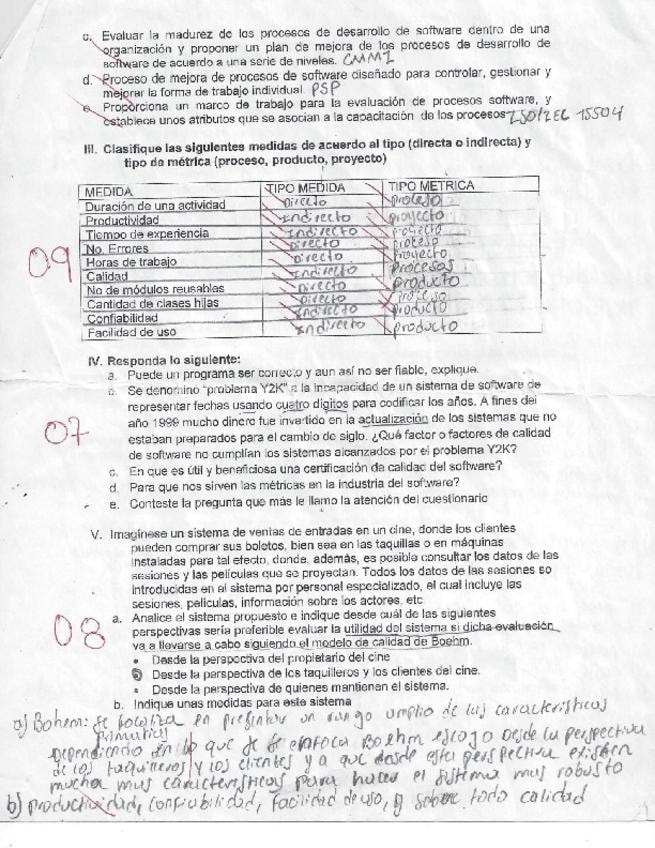 c. Evaluar la madurez de los procesos de desarrollo de software dentro de una
organización y proponer un plan de mejora de los procesos de desarrollo de
software de acuerdo a una serie de niveles. CMMI
d. Proceso de mejora de procesos de software diseñado para controlar, gestionar y
mejorar la forma de trabajo individual. PSP
e. Proporciona un marco de trabajo para la evaluación de procesos software, y
establece unos atributos que se asocian a la capacitación de los procesos ISO/IEC 15504
III. Clasifique las siguientes medidas de acuerdo al tipo (directa o indirecta) y
tipo de métrica (proceso, producto, proyecto)
MEDIDA TIPO MEDIDA TIPO METRICA
Duración de una actividad Directo proceso
Productividad Indirecto proyecto
Tiempo de experiencia Indirecto proyecto
No. Errores Directo proceso
Horas de trabajo Directo proyecto
Calidad Indirecto procesos
No de módulos reusables Directo producto
Cantidad de clases hijas Directo proceso
Confiabilidad Indirecto producto
Facilidad de uso Indirecto producto
09
IV. Responda lo siguiente:
a. Puede un programa ser correcto y aun así no ser fiable, explique.
b. Se denomino "problema Y2K" a la incapacidad de un sistema de software de
representar fechas usando cuatro dígitos para codificar los años. A fines del
año 1999 mucho dinero fue invertido en la actualización de los sistemas que no
estaban preparados para el cambio de siglo. ¿Qué factor o factores de calidad
de software no cumplían los sistemas alcanzados por el problema Y2K?
c. En que es útil y beneficiosa una certificación de calidad del software?
d. Para que nos sirven las métricas en la industria del software?
e. Conteste la pregunta que más le llamo la atención del cuestionario
07
V. Imagínese un sistema de ventas de entradas en un cine, donde los clientes
pueden comprar sus boletos, bien sea en las taquillas o en máquinas
instaladas para tal efecto, donde, además, es posible consultar los datos de las
sesiones y las películas que se proyectan. Todos los datos de las sesiones so
introducidas en el sistema por personal especializado, el cual incluye las
sesiones, películas, información sobre los actores, etc
a. Analice el sistema propuesto e indique desde cuál de las siguientes
perspectivas sería preferible evaluar la utilidad del sistema si dicha evaluación
va a llevarse a cabo siguiendo el modelo de calidad de Boehm.
• Desde la perspectiva del propietario del cine
• Desde la perspectiva de los taquilleros y los clientes del cine.
• Desde la perspectiva de quienes mantienen el sistema.
b. Indique unas medidas para este sistema
08
a) Bohem: se focaliza en presentar un rango amplio de las caracteristicas
primarias
Dependiendo en lo que se enfoca Boehm escogo desde la perspectiva
de los taquilleros y los clientes ya que desde esta perspectiva existen
mucha mas caracteristicas para hacer el sistema mas robusto
b) productividad, confiabilidad, facilidad de uso, y sobre todo calidad